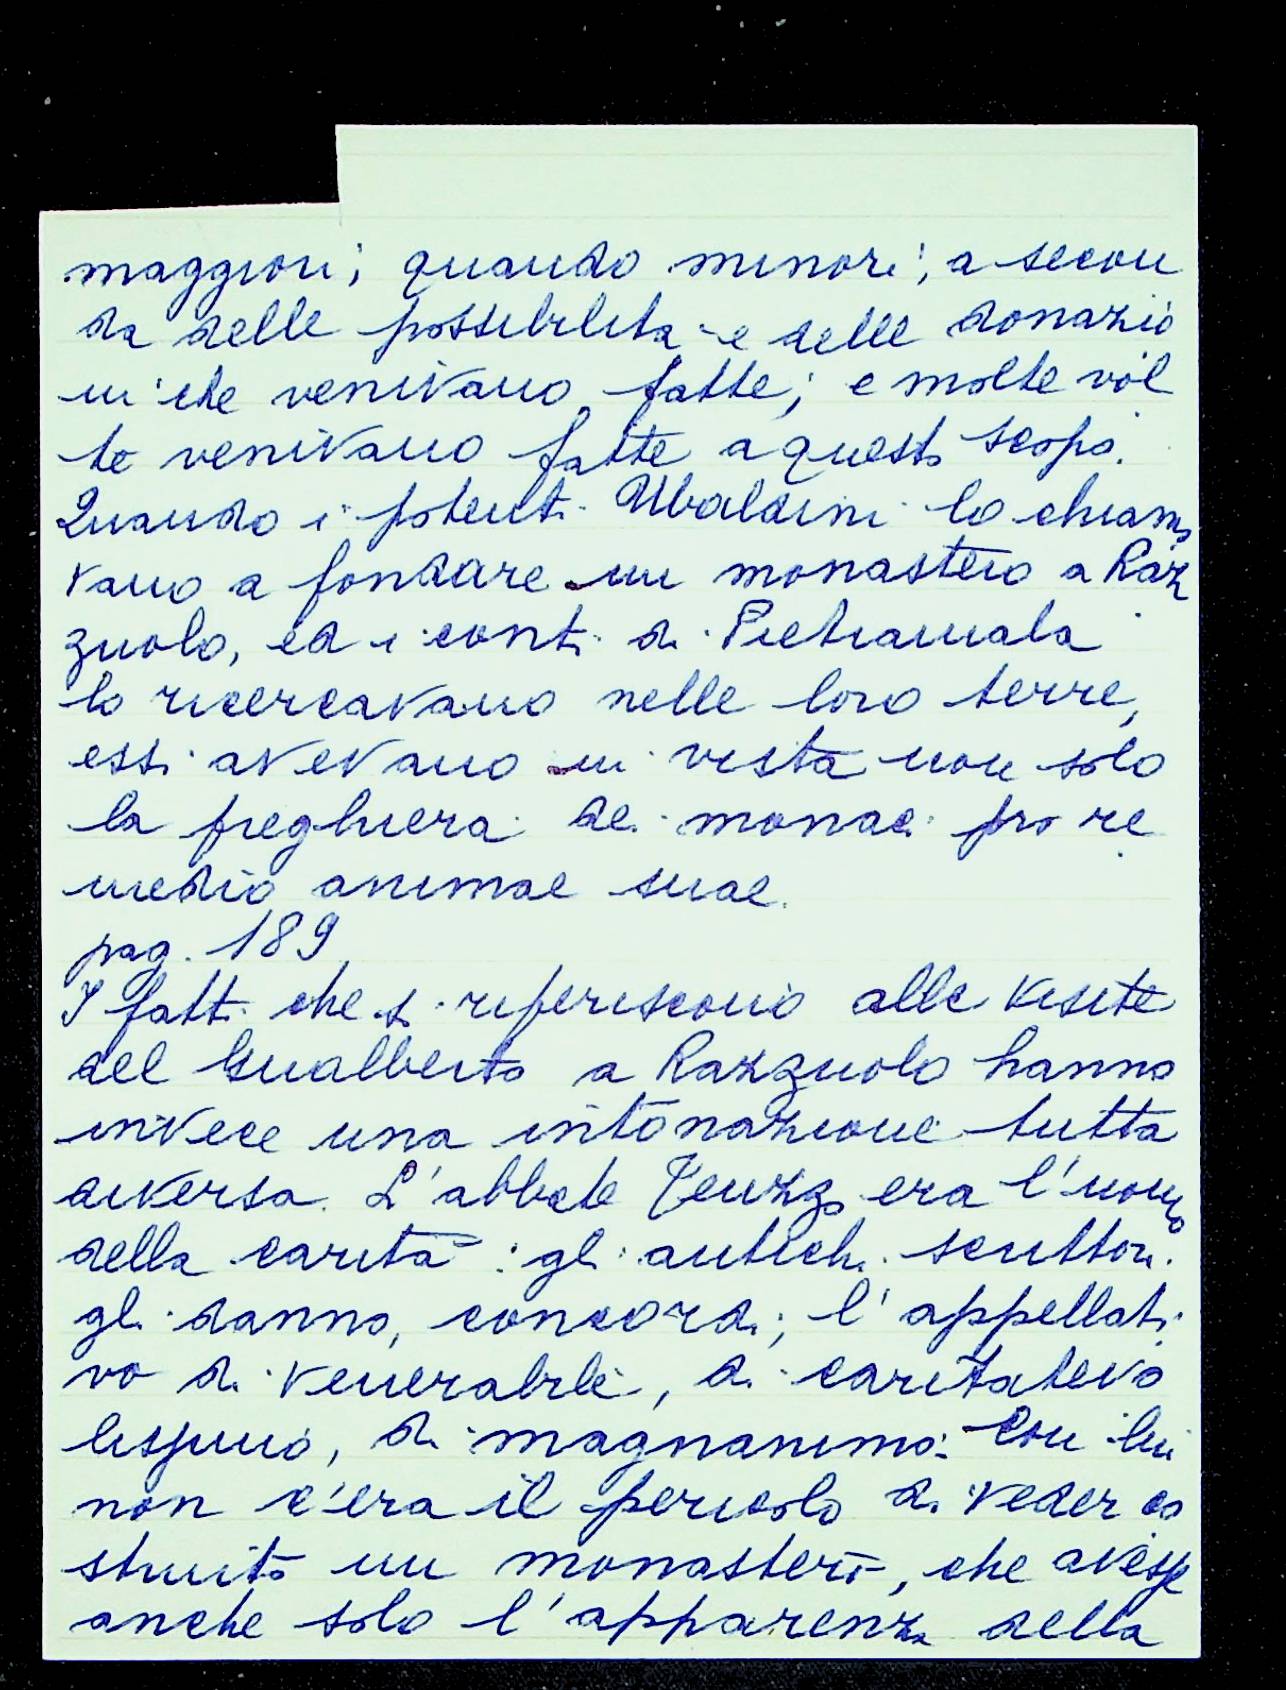 maggiori; quando minori, a secon
da delle possibilità e delle donazio
ni che venivano fatte; e molte vol
te venivano fatte a questo scopo.
Quando i potenti Ubaldini lo chiama
vano a fondare un monastero a Raz
zuolo, ed i conti di Pietramala
lo ricercavano nelle loro terre,
essi avevano in vista non solo
la preghiera dei monaci pro re
medio animae suae.
pag. 189
I fatti che si riferiscono alle visite
del Gualberto a Razzuolo hanno
invece una intonazione tutta
diversa. L'abbate Teuzzo era l'uomo
della carità: gli antichi scrittori
gli danno, concordi, l'appellati
vo di venerabile, di caritatevo
lissimo, di magnanimo. Con lui
non c'era il pericolo di veder co
struito un monastero, che avesse
anche solo l'apparenza della